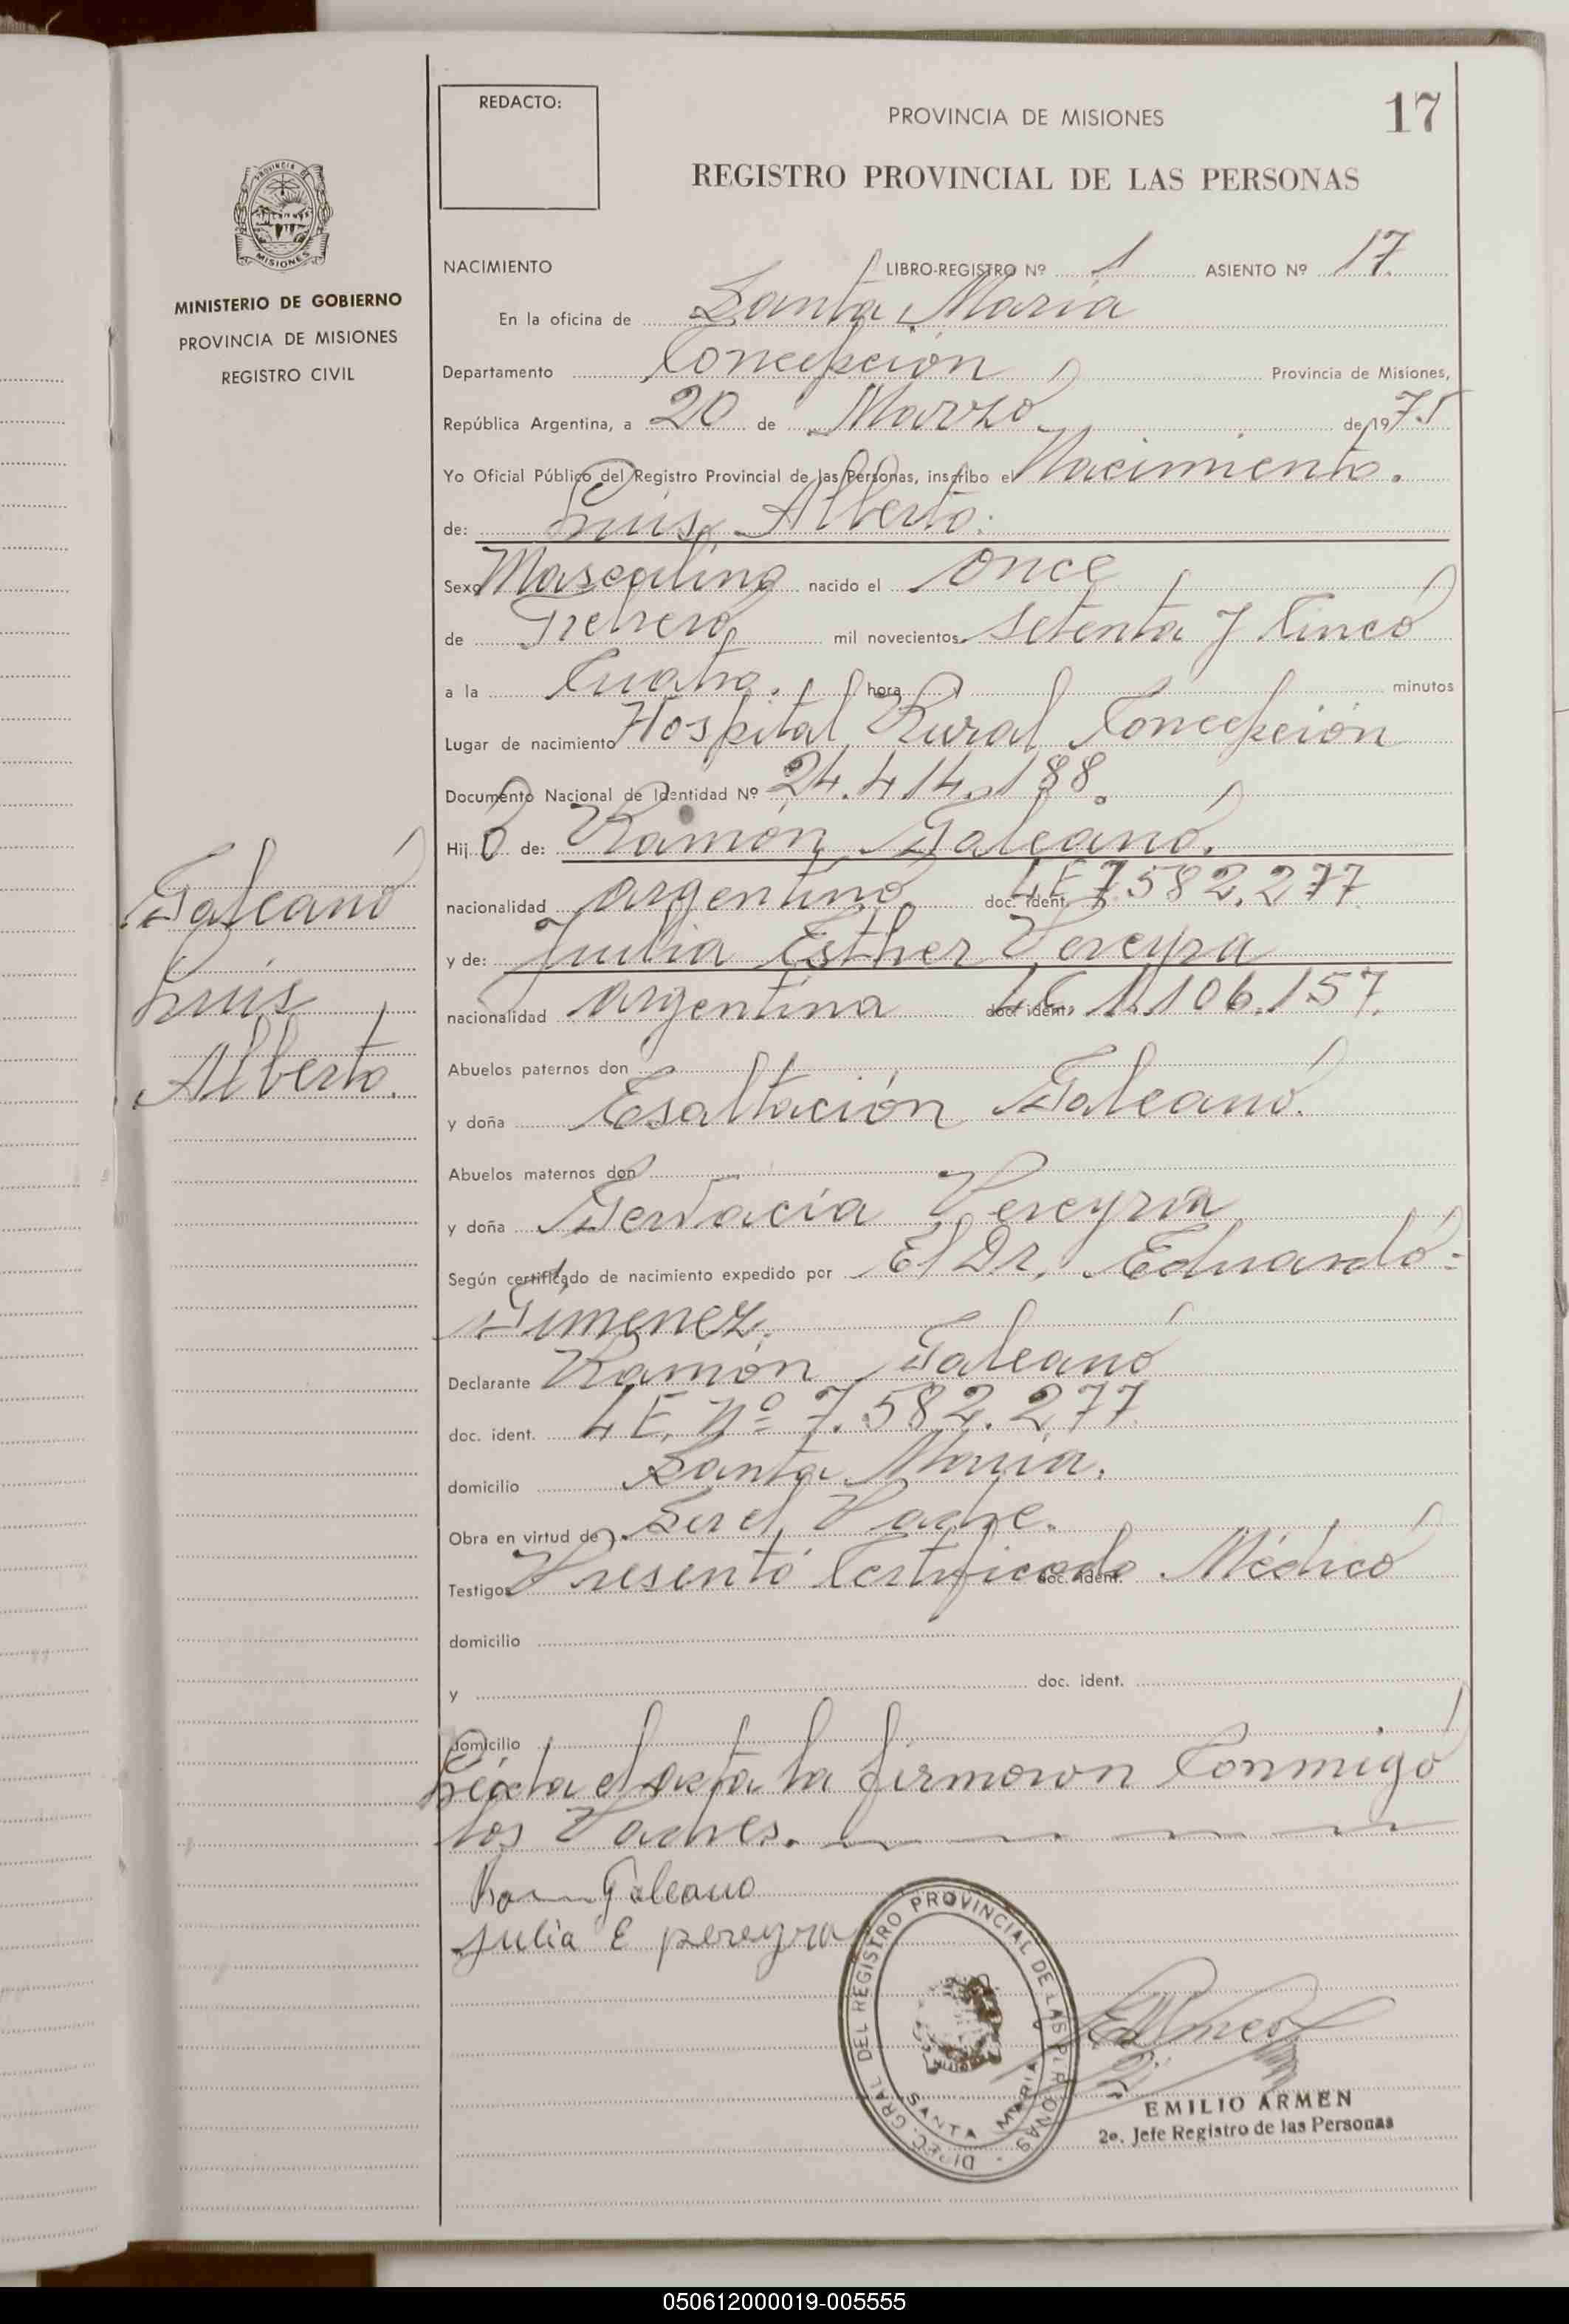 REDACTO:
PROVINCIA DE MISIONES
17
REGISTRO PROVINCIAL DE LAS PERSONAS
PROVINCIA DE MISIONES
MINISTERIO DE GOBIERNO
PROVINCIA DE MISIONES
REGISTRO CIVIL
NACIMIENTO LIBRO-REGISTRO Nº 1 ASIENTO Nº 17.
En la oficina de Santa María
Departamento Concepción Provincia de Misiones,
República Argentina, a 20 de Marzo de 1975
Yo Oficial Público del Registro Provincial de las Personas, inscribo el Nacimiento.
de: Luis Alberto.
Sexo Masculino nacido el once
de Febrero mil novecientos setenta y Cinco
a la Cuatro. hora minutos
Lugar de nacimiento Hospital Rural Concepción
Documento Nacional de Identidad Nº 24.414.188.
Hij o de: Ramón Galeano.
nacionalidad argentino doc. ident. LE 7.582.277
y de: Julia Esther Pereyra
nacionalidad argentina doc. ident. LC 1.106.157.
Abuelos paternos don
y doña Esaltación Galeano.
Abuelos maternos don
y doña Gervacia Pereyra
Según certificado de nacimiento expedido por El Dr. Eduardo
Gimenez.
Declarante Ramón Galeano
doc. ident. LE, Nº 7.582.277
domicilio Santa María.
Obra en virtud de Ser el Padre.
Testigos Presentó Certificado doc. ident. Médico
domicilio
y doc. ident.
domicilio
Leída el acta la firmaron Conmigo
los Padres.
Galeano
Luis
Alberto.
Galeano
Julia E pereyra
DIREC. GRAL. DEL REGISTRO PROVINCIAL DE LAS PERSONAS
SANTA MARIA
EMILIO ARMEN
2o. Jefe Registro de las Personas
050612000019-005555